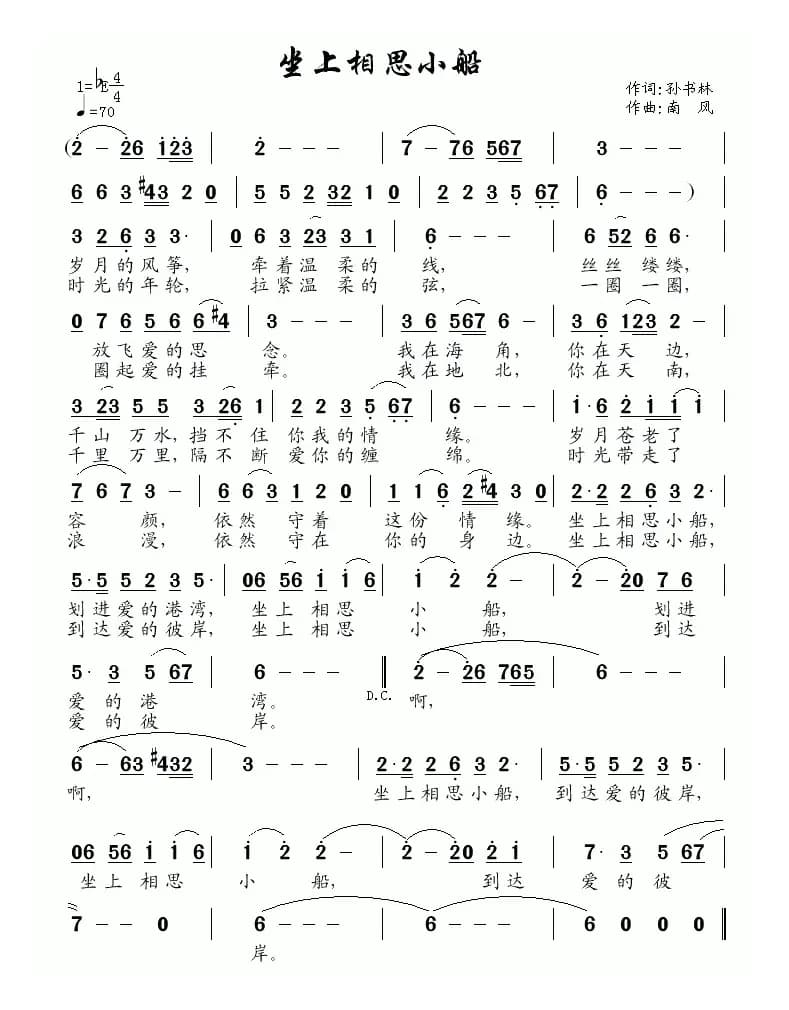 坐上相思小船
1=♭E 4/4
♩=70
作词:孙书林
作曲:南 风
(2̇ – 2̇6 1̇2̇3̇ | 2̇ – – – | 7 – 76 567 | 3 – – – |
6 6 3 #43 2 0 | 5 5 2 32 1 0 | 2 2 3 5 67 | 6 – – – )
3 2 6 3 3· | 0 6 3 23 3 1 | 6 – – – | 6 52 6 6·
岁月的风筝, 牵着温 柔的 线, 丝丝 缕缕,
时光的年轮, 拉紧温 柔的 弦, 一圈 一圈,
0 7 6 5 6 6 #4 | 3 – – – | 3 6 567 6 – | 3 6 123 2 –
放飞爱的思 念。 我在海 角, 你在天 边,
圈起爱的挂 牵。 我在地 北, 你在天 南,
3 23 5 5 3 26 1 | 2 2 3 5 67 | 6 – – – | 1̇· 6 2̇ 1̇ 1̇ 1̇
千山 万水,挡不 住 你我的情 缘。 岁月苍老了
千里 万里,隔不 断 爱你的缠 绵。 时光带走了
7 6 7 3 – | 6 6 3 1 2 0 | 1 1 6 2 #4 3 0 | 2· 2 2 6 3 2·
容 颜, 依然 守着 这份 情缘。 坐上相思小船,
浪 漫, 依然 守在 你的 身边。 坐上相思小船,
5· 5 5 2 3 5· | 06 56 1̇ 1̇ 6 | 1̇ 2̇ 2̇ – | 2̇ – 2̇0 7 6
划进爱的港湾, 坐上 相思 小 船, 划进
到达爱的彼岸, 坐上 相思 小 船, 到达
5· 3 5 67 | 6 – – – ‖ 2̇ – 2̇6 765 | 6 – – –
爱 的 港 湾。 D.C. 啊,
爱 的 彼 岸。
6 – 63 #432 | 3 – – – | 2· 2 2 6 3 2· | 5· 5 5 2 3 5·
啊, 坐上相思小船, 到达爱的彼岸,
06 56 1̇ 1̇ 6 | 1̇ 2̇ 2̇ – | 2̇ – 2̇0 2̇ 1̇ | 7· 3 5 67
坐上 相思 小 船, 到达 爱 的 彼
7 – – 0 | 6 – – – | 6 – – – | 6 0 0 0 ‖
岸。